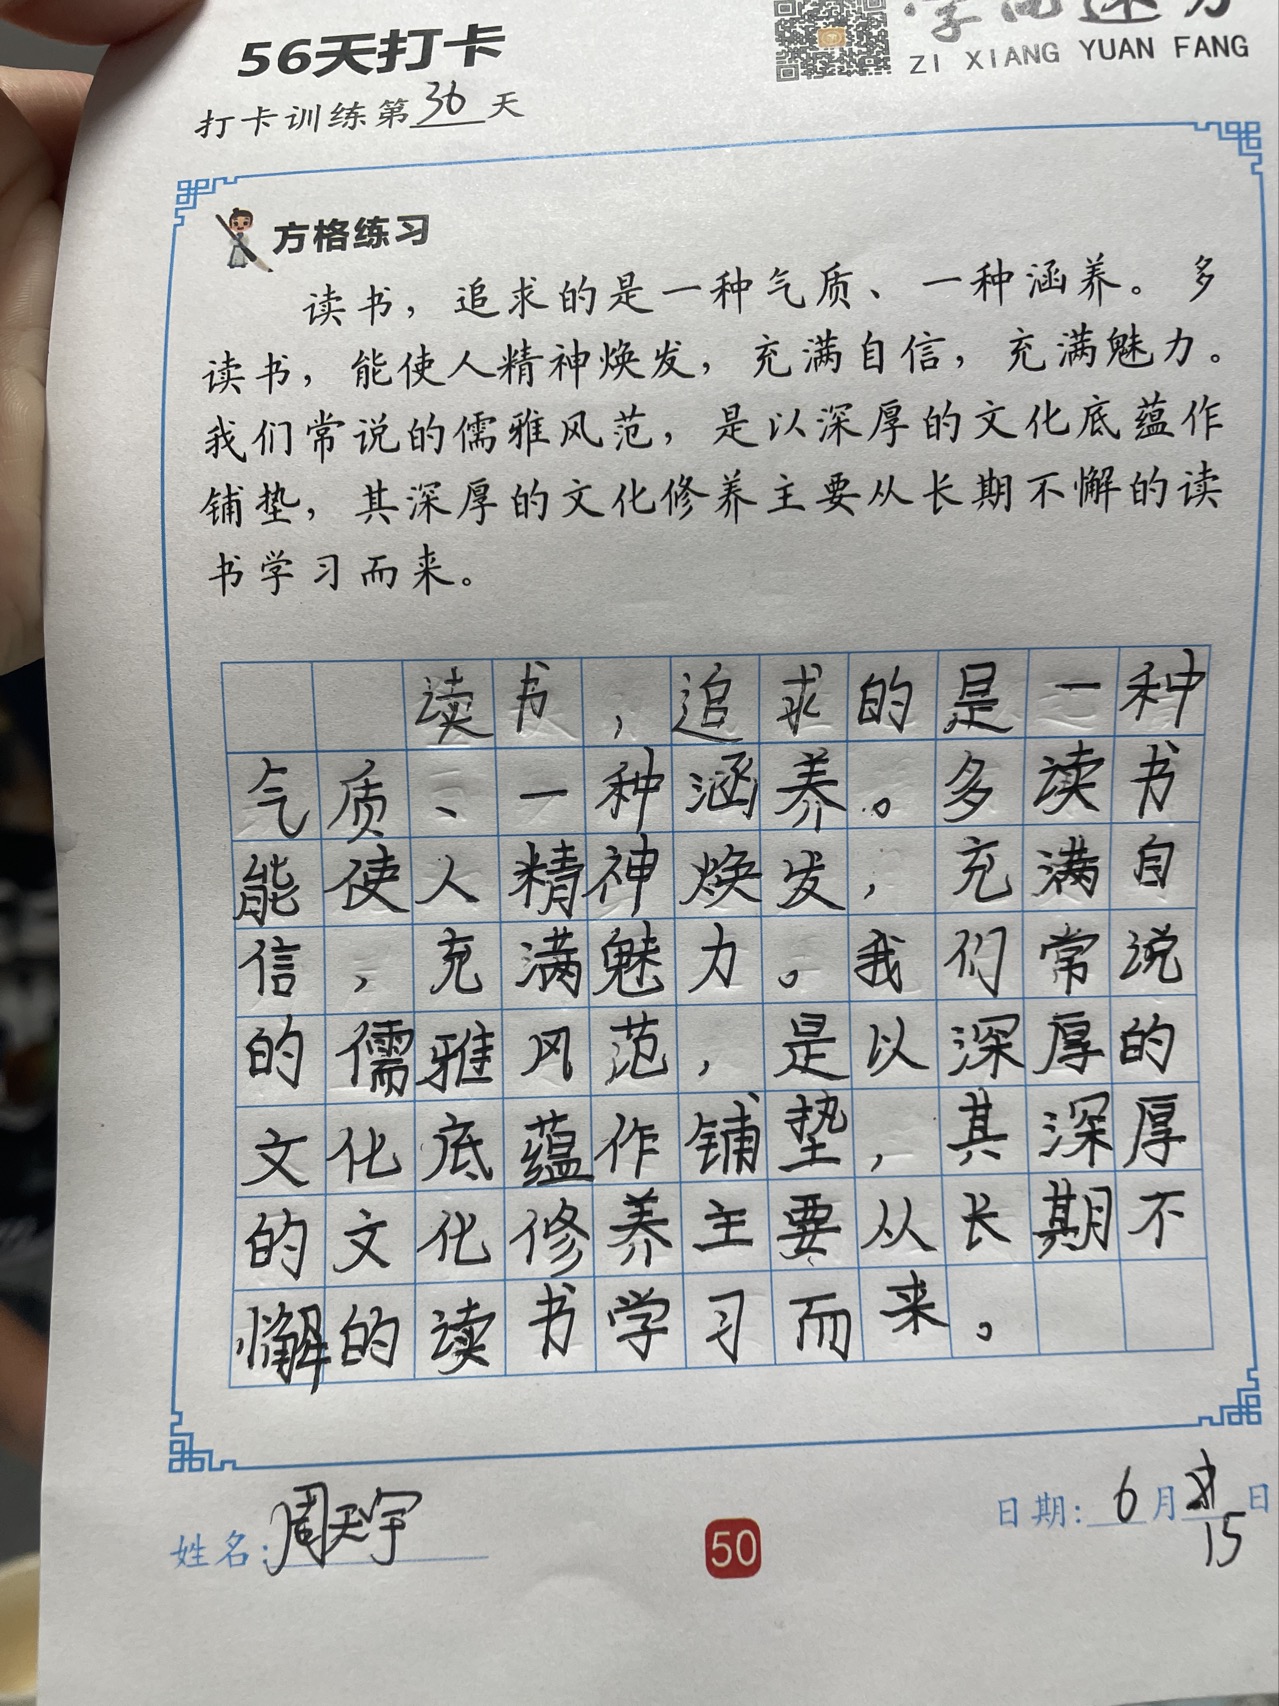 56天打卡
ZI XIANG YUAN FANG
打卡训练第36天
方格练习
读书，追求的是一种气质、一种涵养。多
读书，能使人精神焕发，充满自信，充满魅力。
我们常说的儒雅风范，是以深厚的文化底蕴作
铺垫，其深厚的文化修养主要从长期不懈的读
书学习而来。
读书，追求的是一种
气质、一种涵养。多读书
能使人精神焕发，充满自
信，充满魅力。我们常说
的儒雅风范，是以深厚的
文化底蕴作铺垫，其深厚
的文化修养主要从长期不
懈的读书学习而来。
姓名：周天宇
50
日期：6月15日